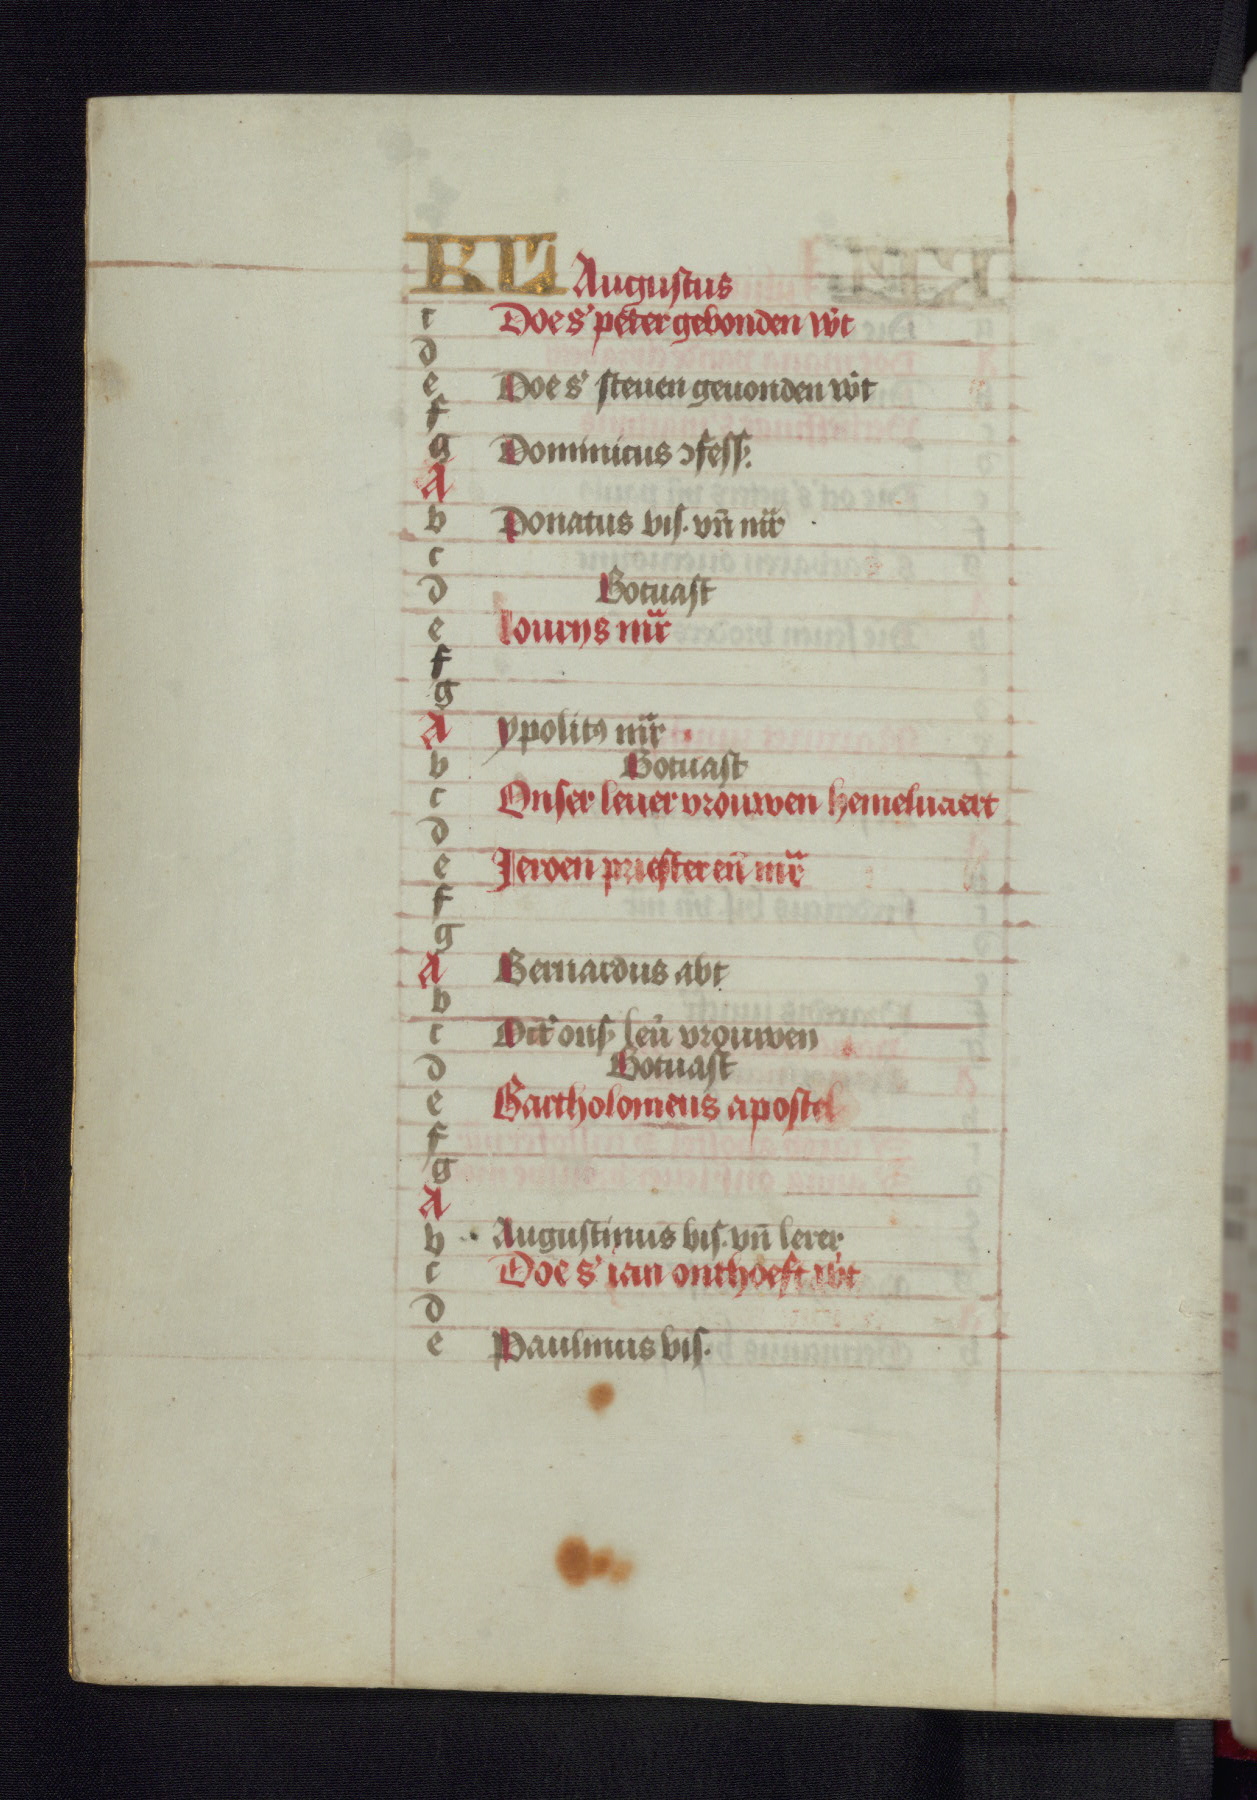 KL Augustus
c Doe s' peter gebonden wt
d
e Doe s' steuen geuonden wt
f
g Dominicus ɔfess.
A
b Donatus bis. vn̄ mr̄
c
d Botuast
e lourijs mr̄
f
g
A ypolitꝰ mr̄
b Botuast
c Onser leuer vrouwen hemeluaert
d
e Jeroen priester en̄ mr̄
f
g
A Bernardus abt
b
c Oct' ons leū vrouwen
d Botuast
e Bartholomeus apostel
f
g
A
b Augustinus bis. vn̄ lerer
c Doe s' ian onthoeft wt
d
e Paulinus bis.